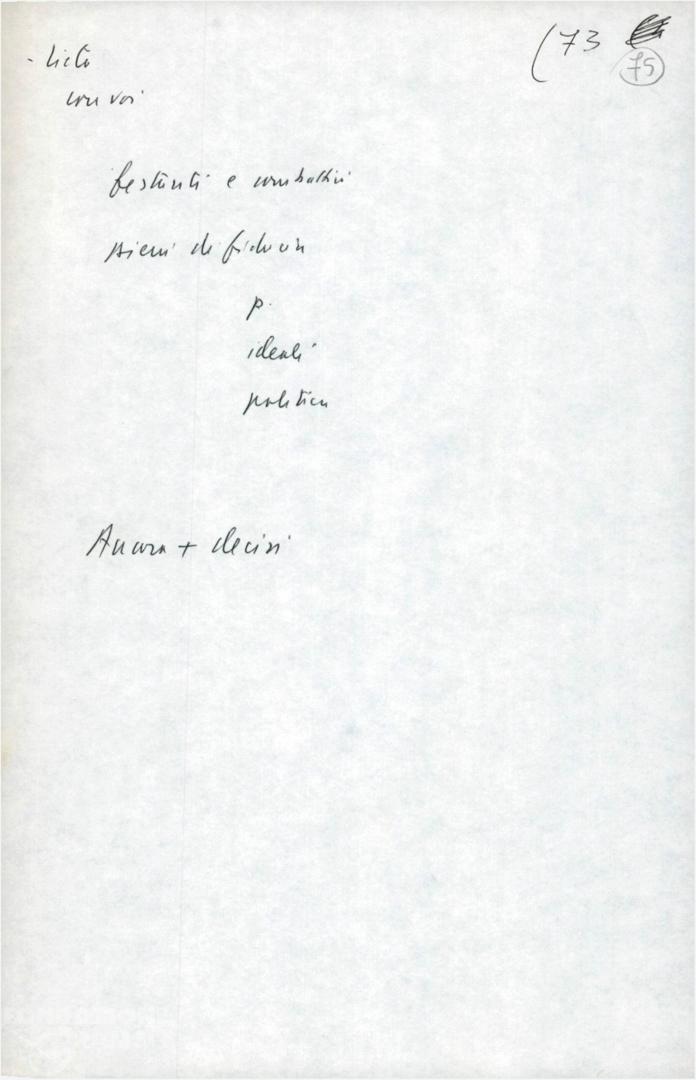 (73
75
- lieto
con voi
festanti e combattivi
pieni di fiducia
p.
ideali
politica
Ancora + decisi